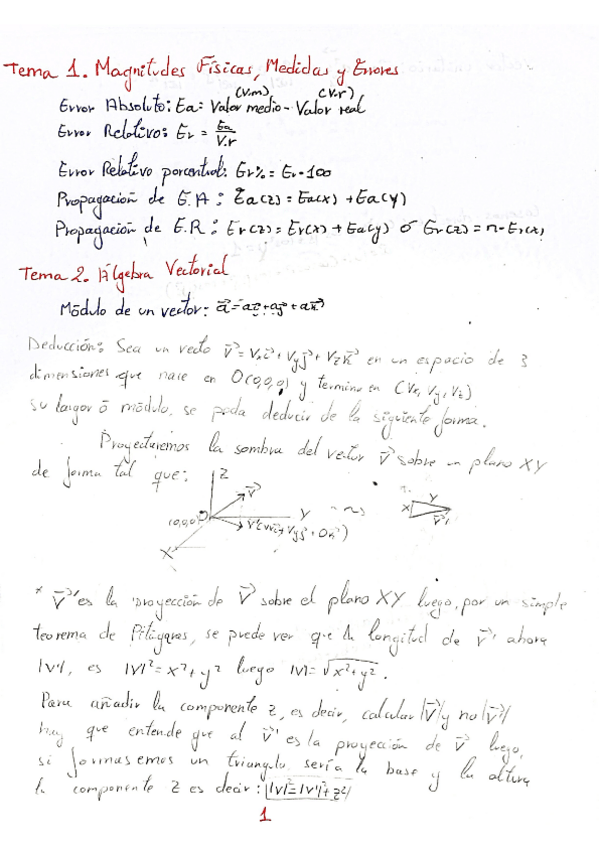 Tema 1. Magnitudes Físicas, Medidas y Errores
(V.m) (V.r)
Error Absoluto: Ea = Valor medio - Valor real
Error Relativo: Er = Ea / V.r
Error Relativo porcentual: Er% = Er · 100
Propagación de E.A: Ea(z) = Ea(x) + Ea(y)
Propagación de E.R: Er(z) = Er(x) + Ea(y) ó Er(z) = n · Er(x)
Tema 2. Álgebra Vectorial
Módulo de un vector:
Deducción: Sea un vecto v⃗ = Vxi⃗ + Vyj⃗ + Vzk⃗ en un espacio de 3
dimensiones que nace en O(0,0,0) y termina en (Vx, Vy, Vz)
su largor ó módulo, se puda deducir de la siguiente forma.
Proyectaremos la sombra del vector v⃗ sobre un plano XY
de forma tal que:
Z
v⃗
Y
X
(0,0,0)
X Y v⃗'
* v⃗' es la proyección de v⃗ sobre el plano XY luego, por un simple
teorema de Pitágoras, se puede ver que la longitud de v⃗' ahora
|v'|, es |v'|² = x² + y² luego |v'| = √x² + y².
Para añadir la componente z, es decir, calcular |v⃗| y no |v⃗'|
hay que entende que al v⃗' es la proyección de v⃗ luego,
si formasemos un triangulo sería la base y la altura
la componente z es decir: |v|² = |v'|² + z²
1